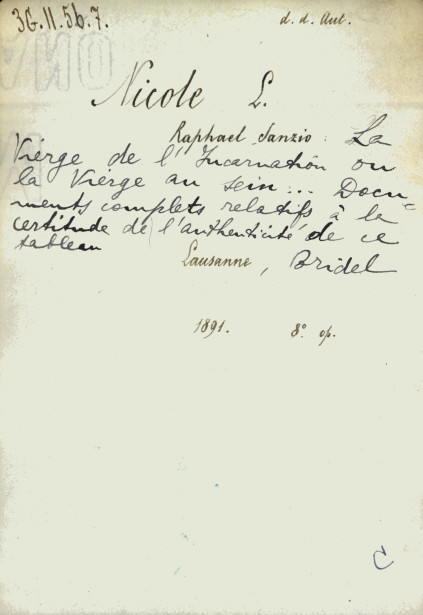 3G.II.5b.7.
d. d. Aut.
Nicole L.
Raphael Sanzio: La
Vierge de l'Incarnation ou
la Vierge au sein... Docu-
ments complets relatifs à la
certitude de l'authenticité de ce
tableau
Lausanne, Bridel
1891. 8° op.
C